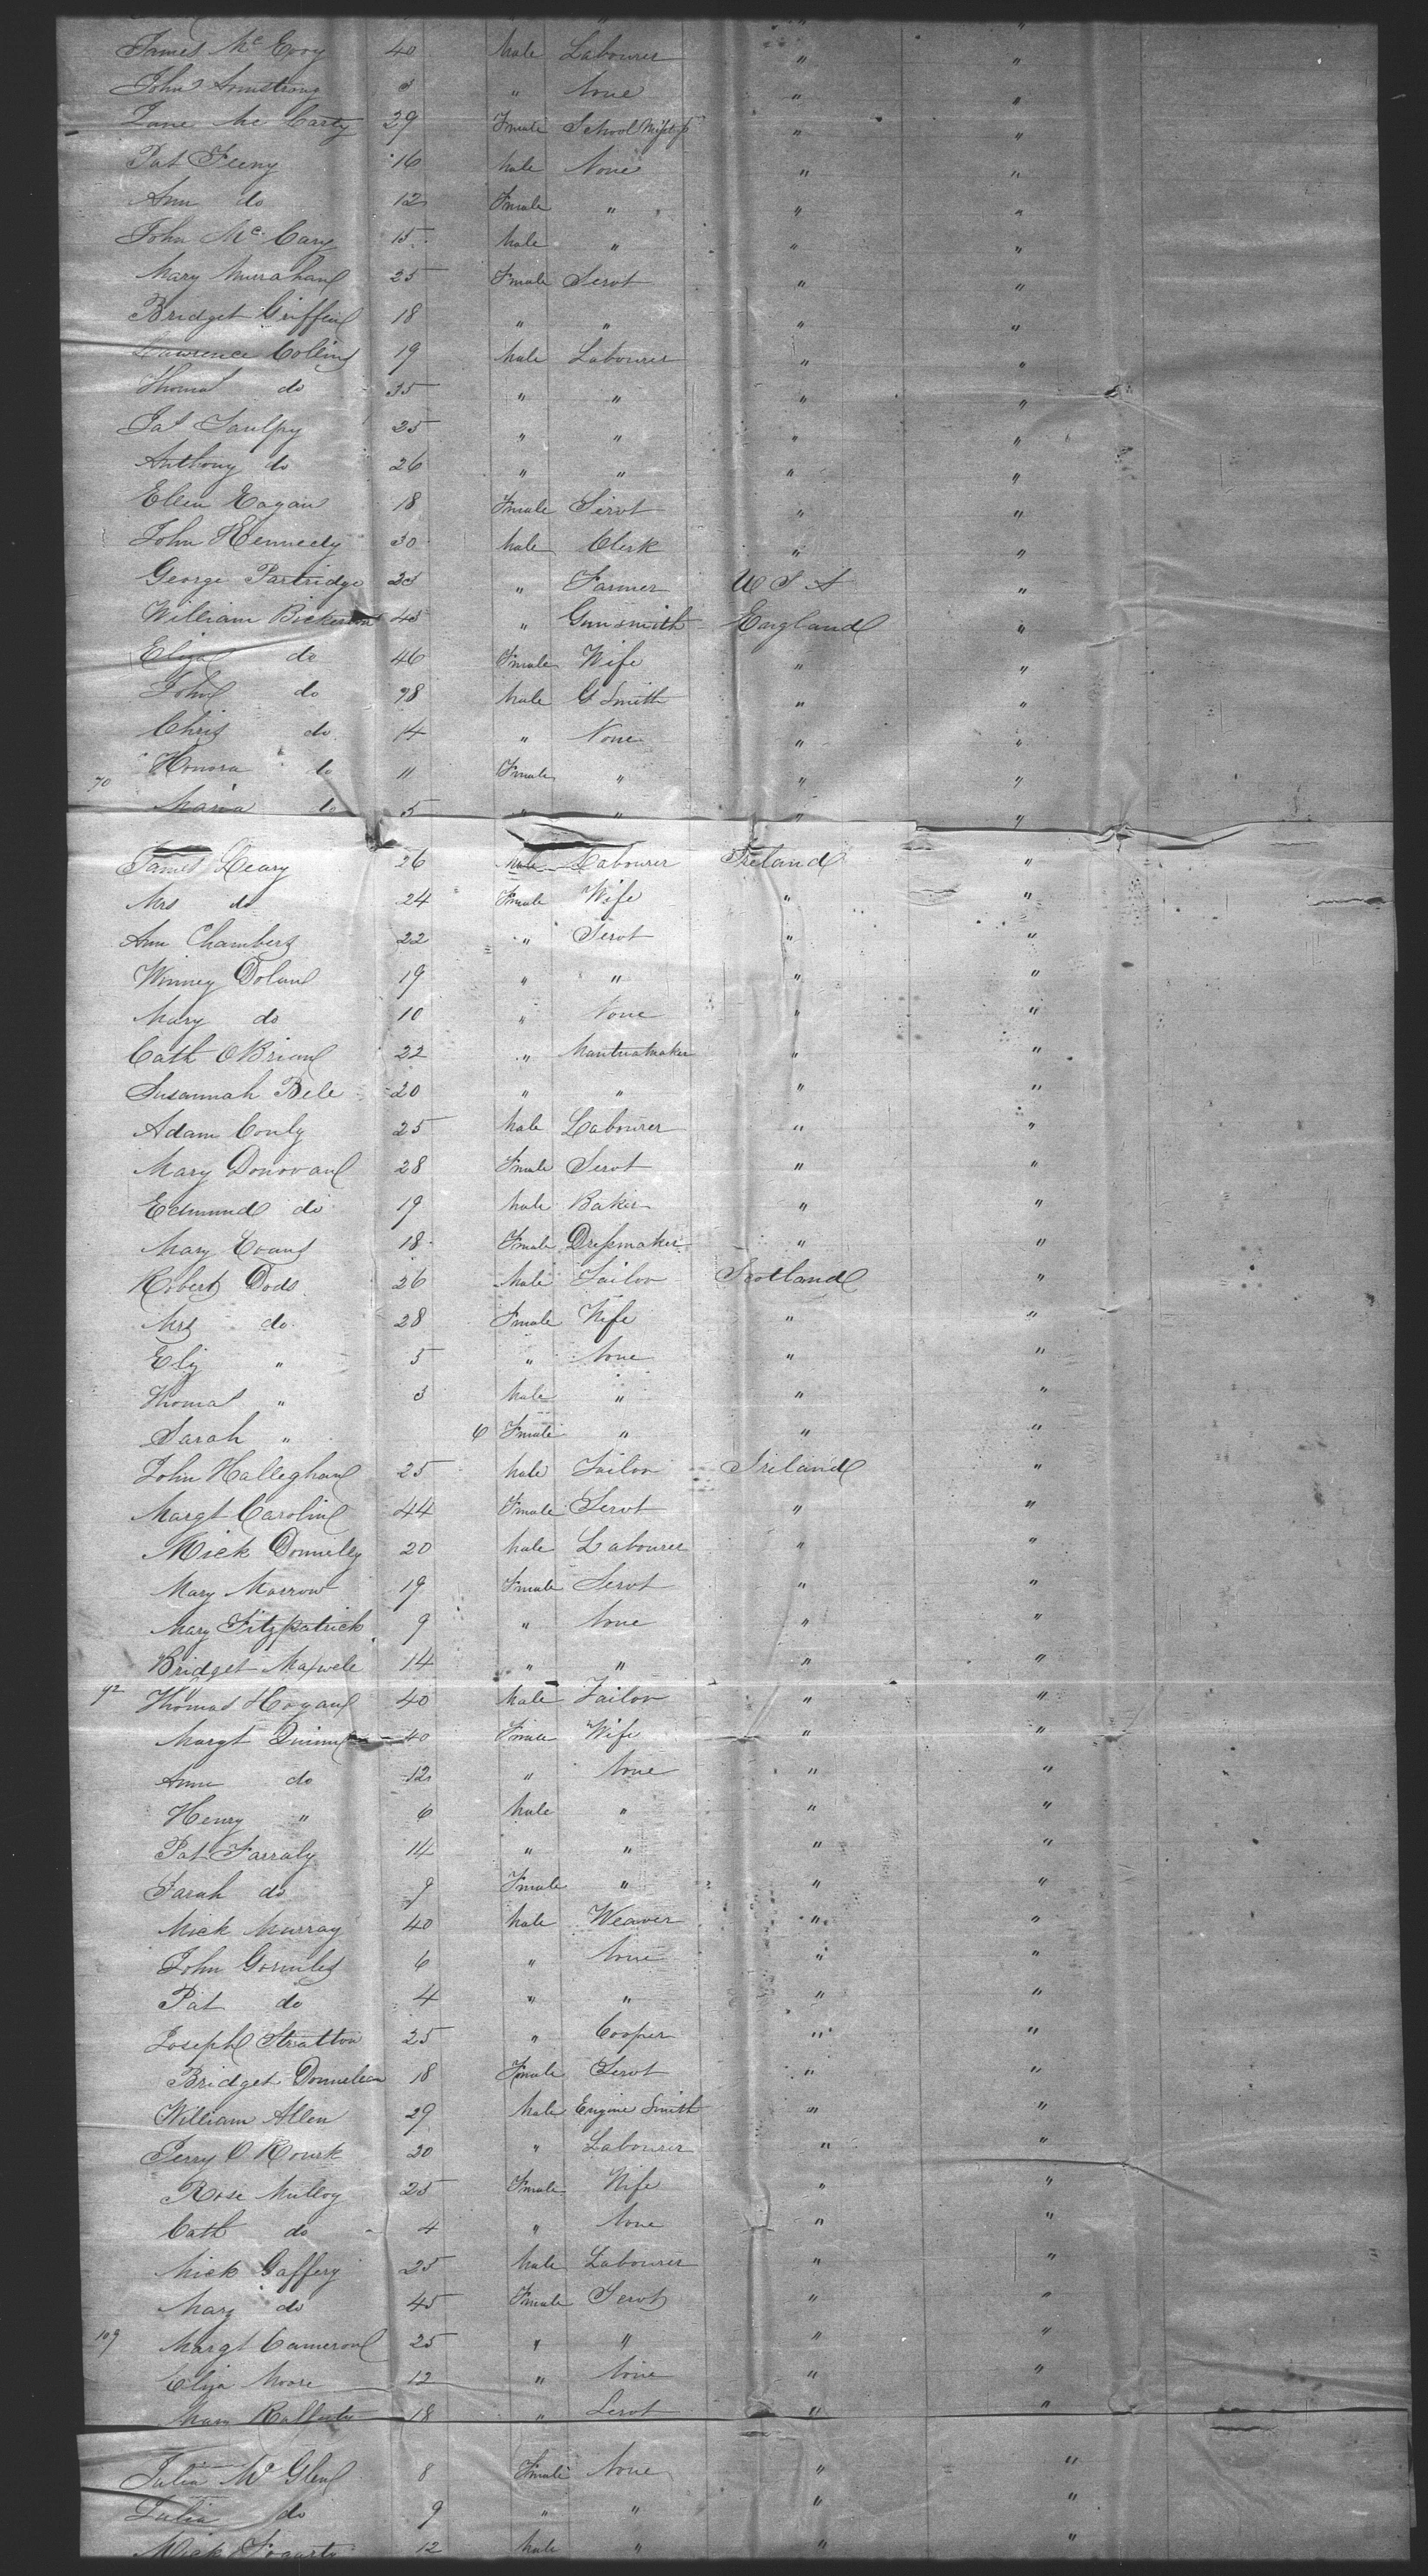 James Mc Evoy 40 Male Labourer " "
John Armstrong 3 " None " "
Jane Mc Carty 29 Female School Mistress " "
Pat Feeny 16 Male None " "
Ann do 12 Female " " "
John Mc Cary 15 Male " " "
Mary 25 Female Servt " "
Bridget Griffin 18 " " " "
Lawrence Collins 19 Male Labourer " "
Thomas do 35 " " " "
25 " " " "
Anthony do 26 " " " "
Ellen Eagan 18 Female Servt " "
John Kennedy 30 Male Clerk " "
George Partridge " Farmer U S A "
William 45 " Gunsmith England "
Eliza do 46 Female Wife " "
John do Male G Smith " "
Chris do 14 " None " "
70 Honora do 11 Female " " "
Maria do 5 " " " "
James Leary 26 Male Labourer Ireland "
Mrs do 24 Female Wife " "
Ann Chambers 22 " Servt " "
Winney Dolan 19 " " " "
Mary do 10 " None " "
Cath OBrian 22 " Mantuamaker " "
Susannah Bele 20 " " " "
Adam Conly 25 Male Labourer " "
Mary Donovan 28 Female Servt " "
Edmund do 19 Male Baker " "
Mary Evans 18 Female Dressmaker " "
Robert Dods 26 Male Tailor Scotland "
Mrs do 28 Female Wife " "
Eliz " 5 " None " "
Thomas " 3 Male " " "
Sarah " 6 Female " " "
John Halleghan 25 Male Tailor Ireland "
Margt Carolin 44 Female Servt " "
Mick Donnelly 20 Male Labourer " "
Mary Marrow 19 Female Servt " "
Mary Fitzpatrick 9 " None " "
Bridget Maxwele 14 " " " "
92 Thomas Hogan 40 Male Tailor " "
Margt 40 Female Wife " "
Ann do 12 " None " "
Henry " 6 Male " " "
Pat Farraly 14 " " " "
Sarah do 9 Female " " "
Mick Murray 40 Male Weaver " "
John Gormley 6 " None " "
Pat do 4 " " " "
Joseph Stratton 25 " Cooper " "
Bridget 18 Female Servt " "
William Allen 29 Male Engine Smith " "
Perry O Rourk 20 " Labourer " "
Rose Mulloy 25 Female Wife " "
Cath do 4 " None " "
Mick Gaffery 25 Male Labourer " "
Mary do 45 Female Servt " "
109 Margt Cameron 25 " " " "
Eliza Moore 12 " None " "
Mary Rafferty 18 " Servt " "
Julia Mc Glen 8 Female None " "
Julia do 9 " " " "
Mick Fogarty 12 Male " " "